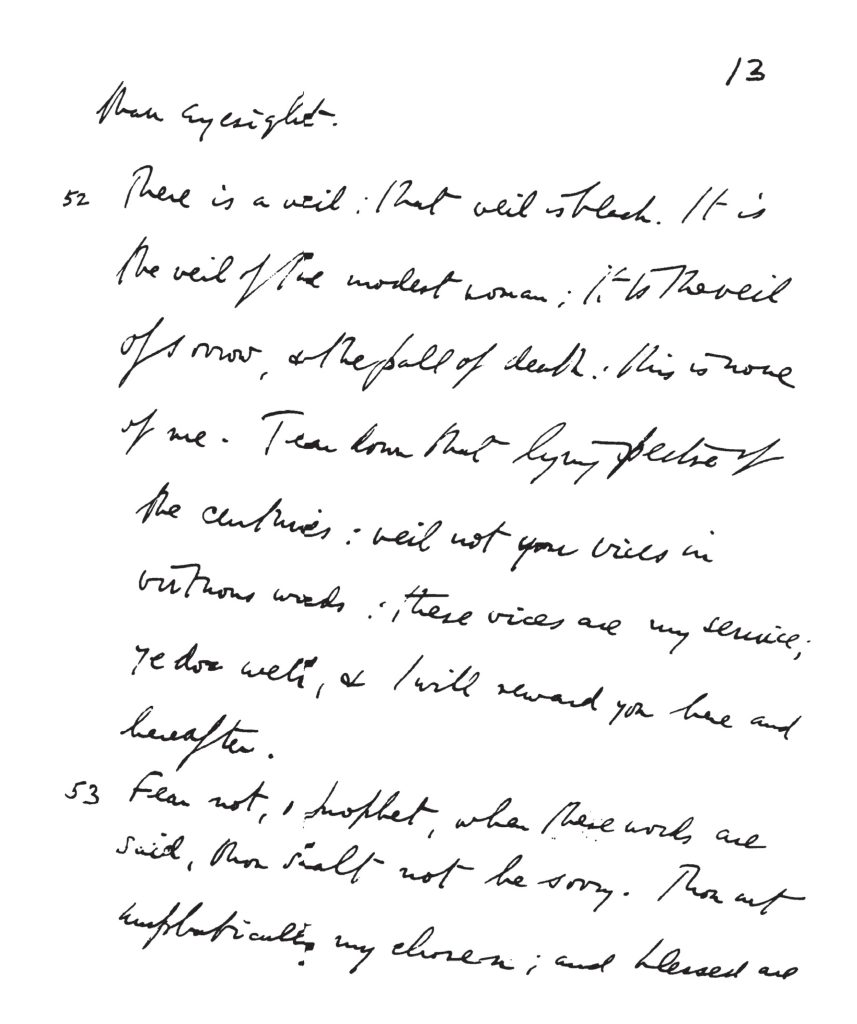 13
than eyesight.
52 There is a veil : that veil is black. It is
the veil of the modest woman ; it is the veil
of sorrow, & the pall of death : this is none
of me. Tear down that lying spectre of
the centuries : veil not your vices in
virtuous words : these vices are my service;
ye do well, & I will reward you here and
hereafter.
53 Fear not, o prophet, when these words are
said, thou shalt not be sorry. Thou art
emphatically my chosen ; and blessed are